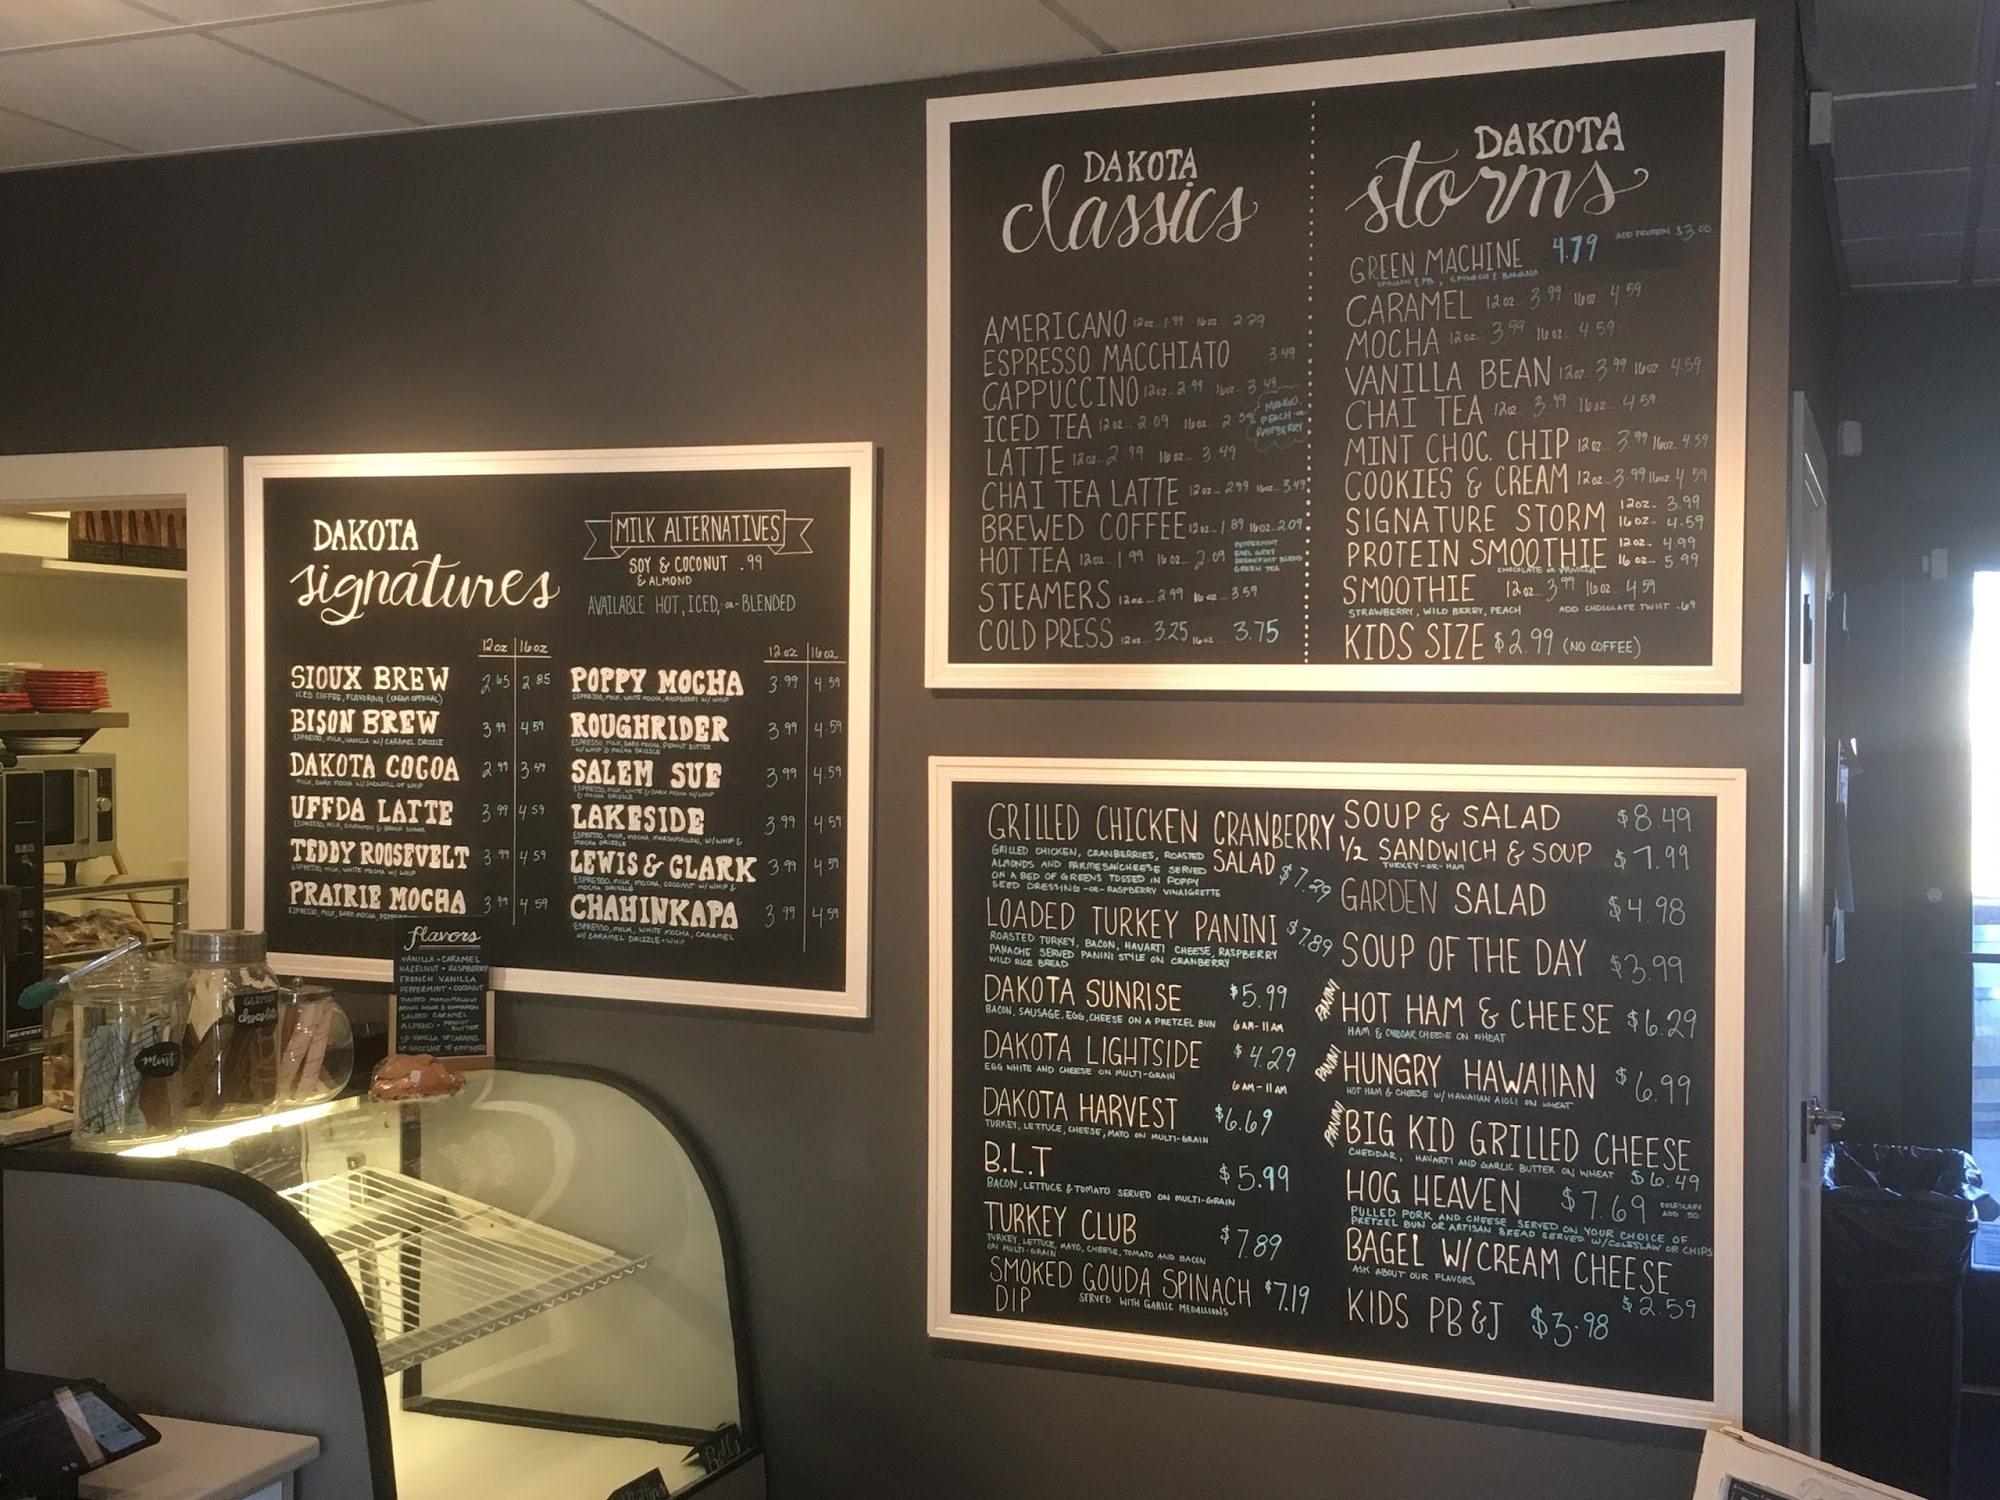 DAKOTA
signatures
MILK ALTERNATIVES
SOY & COCONUT .99
& ALMOND
AVAILABLE HOT, ICED, -OR- BLENDED
12 oz 16 oz
SIOUX BREW 2.65 2.85
ICED COFFEE, FLAVORING (CREAM OPTIONAL)
BISON BREW 3.99 4.59
ESPRESSO, MILK, VANILLA W/ CARAMEL DRIZZLE
DAKOTA COCOA 2.99 3.49
MILK, DARK MOCHA W/ SNOWHILL OF WHIP
UFFDA LATTE 3.99 4.59
ESPRESSO, MILK, CINNAMON & BROWN SUGAR
TEDDY ROOSEVELT 3.99 4.59
ESPRESSO, MILK, WHITE MOCHA W/ WHIP
PRAIRIE MOCHA 3.99 4.59
ESPRESSO, MILK, DARK MOCHA,
12 oz 16 oz
POPPY MOCHA 3.99 4.59
ESPRESSO, MILK, WHITE MOCHA, RASPBERRY W/ WHIP
ROUGHRIDER 3.99 4.59
ESPRESSO, MILK, DARK MOCHA, PEANUT BUTTER
W/ WHIP & MOCHA DRIZZLE
SALEM SUE 3.99 4.59
ESPRESSO, MILK, WHITE & DARK MOCHA W/ WHIP
& MOCHA DRIZZLE
LAKESIDE 3.99 4.59
ESPRESSO, MILK, MOCHA, MARSHMALLOW, W/ WHIP &
MOCHA DRIZZLE
LEWIS & CLARK 3.99 4.59
ESPRESSO, MILK, MOCHA, COCONUT W/ WHIP &
MOCHA DRIZZLE
CHAHINKAPA 3.99 4.59
ESPRESSO, MILK, WHITE MOCHA, CARAMEL
W/ CARAMEL DRIZZLE + WHIP
flavors
VANILLA • CARAMEL
HAZELNUT • RASPBERRY
FRENCH VANILLA
PEPPERMINT • COCONUT
TOASTED MARSHMALLOW
BROWN SUGAR & CINNAMON
SALTED CARAMEL
ALMOND • PEANUT
BUTTER
SF VANILLA SF CARAMEL
GERMAN
chocolate
mint
DAKOTA
classics
AMERICANO 12oz...1.99 16oz...2.29
ESPRESSO MACCHIATO 3.49
CAPPUCCINO 12oz...2.99 16oz...3.49
ICED TEA 12oz...2.09 16oz...2.59
MANGO,
PEACH -or-
RASPBERRY
LATTE 12oz...2.99 16oz...3.49
CHAI TEA LATTE 12oz...2.99 16oz...3.49
BREWED COFFEE 12oz...1.89 16oz...2.09
HOT TEA 12oz...1.99 16oz...2.09
PEPPERMINT
EARL GREY
BREAKFAST BLEND
GREEN TEA
STEAMERS 12oz...2.99 16oz...3.59
COLD PRESS 12oz...3.25 16oz...3.75
DAKOTA
storms
GREEN MACHINE 4.79 ADD PROTEIN $3.00
SPINACH & PB, SPINACH & BANANA
CARAMEL 12oz...3.99 16oz...4.59
MOCHA 12oz...3.99 16oz...4.59
VANILLA BEAN 12oz...3.99 16oz...4.59
CHAI TEA 12oz...3.99 16oz...4.59
MINT CHOC. CHIP 12oz...3.99 16oz...4.59
COOKIES & CREAM 12oz...3.99 16oz...4.59
SIGNATURE STORM 12oz...3.99
16oz...4.59
PROTEIN SMOOTHIE 12oz...4.99
16oz...5.99
CHOCOLATE or VANILLA
SMOOTHIE 12oz...3.99 16oz...4.59
STRAWBERRY, WILD BERRY, PEACH ADD CHOCOLATE TWIST .69
KIDS SIZE $2.99 (NO COFFEE)
GRILLED CHICKEN CRANBERRY
SALAD $7.29
GRILLED CHICKEN, CRANBERRIES, ROASTED
ALMONDS AND PARMESAN CHEESE SERVED
ON A BED OF GREENS TOSSED IN POPPY
SEED DRESSING -OR- RASPBERRY VINAIGRETTE
LOADED TURKEY PANINI $7.89
ROASTED TURKEY, BACON, HAVARTI CHEESE, RASPBERRY
PANACHE SERVED PANINI STYLE ON CRANBERRY
WILD RICE BREAD
DAKOTA SUNRISE $5.99
BACON, SAUSAGE, EGG, CHEESE ON A PRETZEL BUN 6AM-11AM
DAKOTA LIGHTSIDE $4.29
EGG WHITE AND CHEESE ON MULTI-GRAIN 6AM-11AM
DAKOTA HARVEST $6.69
TURKEY, LETTUCE, CHEESE, MAYO ON MULTI-GRAIN
B.L.T $5.99
BACON, LETTUCE & TOMATO SERVED ON MULTI-GRAIN
TURKEY CLUB $7.89
TURKEY, LETTUCE, MAYO, CHEESE, TOMATO AND BACON
ON MULTI-GRAIN
SMOKED GOUDA SPINACH $7.19
DIP SERVED WITH GARLIC MEDALLIONS
SOUP & SALAD $8.49
1/2 SANDWICH & SOUP $7.99
TURKEY -OR- HAM
GARDEN SALAD $4.98
SOUP OF THE DAY $3.99
PANINI HOT HAM & CHEESE $6.29
HAM & CHEDDAR CHEESE ON WHEAT
PANINI HUNGRY HAWAIIAN $6.99
HOT HAM & CHEESE W/ HAWAIIAN AIOLI ON WHEAT
PANINI BIG KID GRILLED CHEESE
CHEDDAR, HAVARTI AND GARLIC BUTTER ON WHEAT $6.49
HOG HEAVEN $7.69 COLESLAW
ADD .50
PULLED PORK AND CHEESE SERVED ON YOUR CHOICE OF
PRETZEL BUN OR ARTISAN BREAD SERVED W/ COLESLAW OR CHIPS
BAGEL W/CREAM CHEESE
ASK ABOUT OUR FLAVORS $2.59
KIDS PB&J $3.98
Muffins